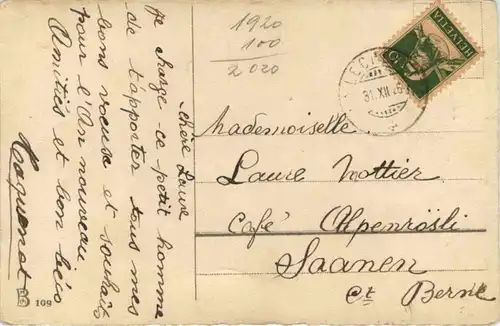 Chère Laure
je charge ce petit homme
de t'apporter tous mes
bons voeux et souhaits
pour l'An nouveau
Amitiés et bon bécs
109
1920
100
2020
HELVETIA
10
31.XII.
Mademoiselle
Laure Nottier
Café Alpenrösli
Saanen
Ct Berne